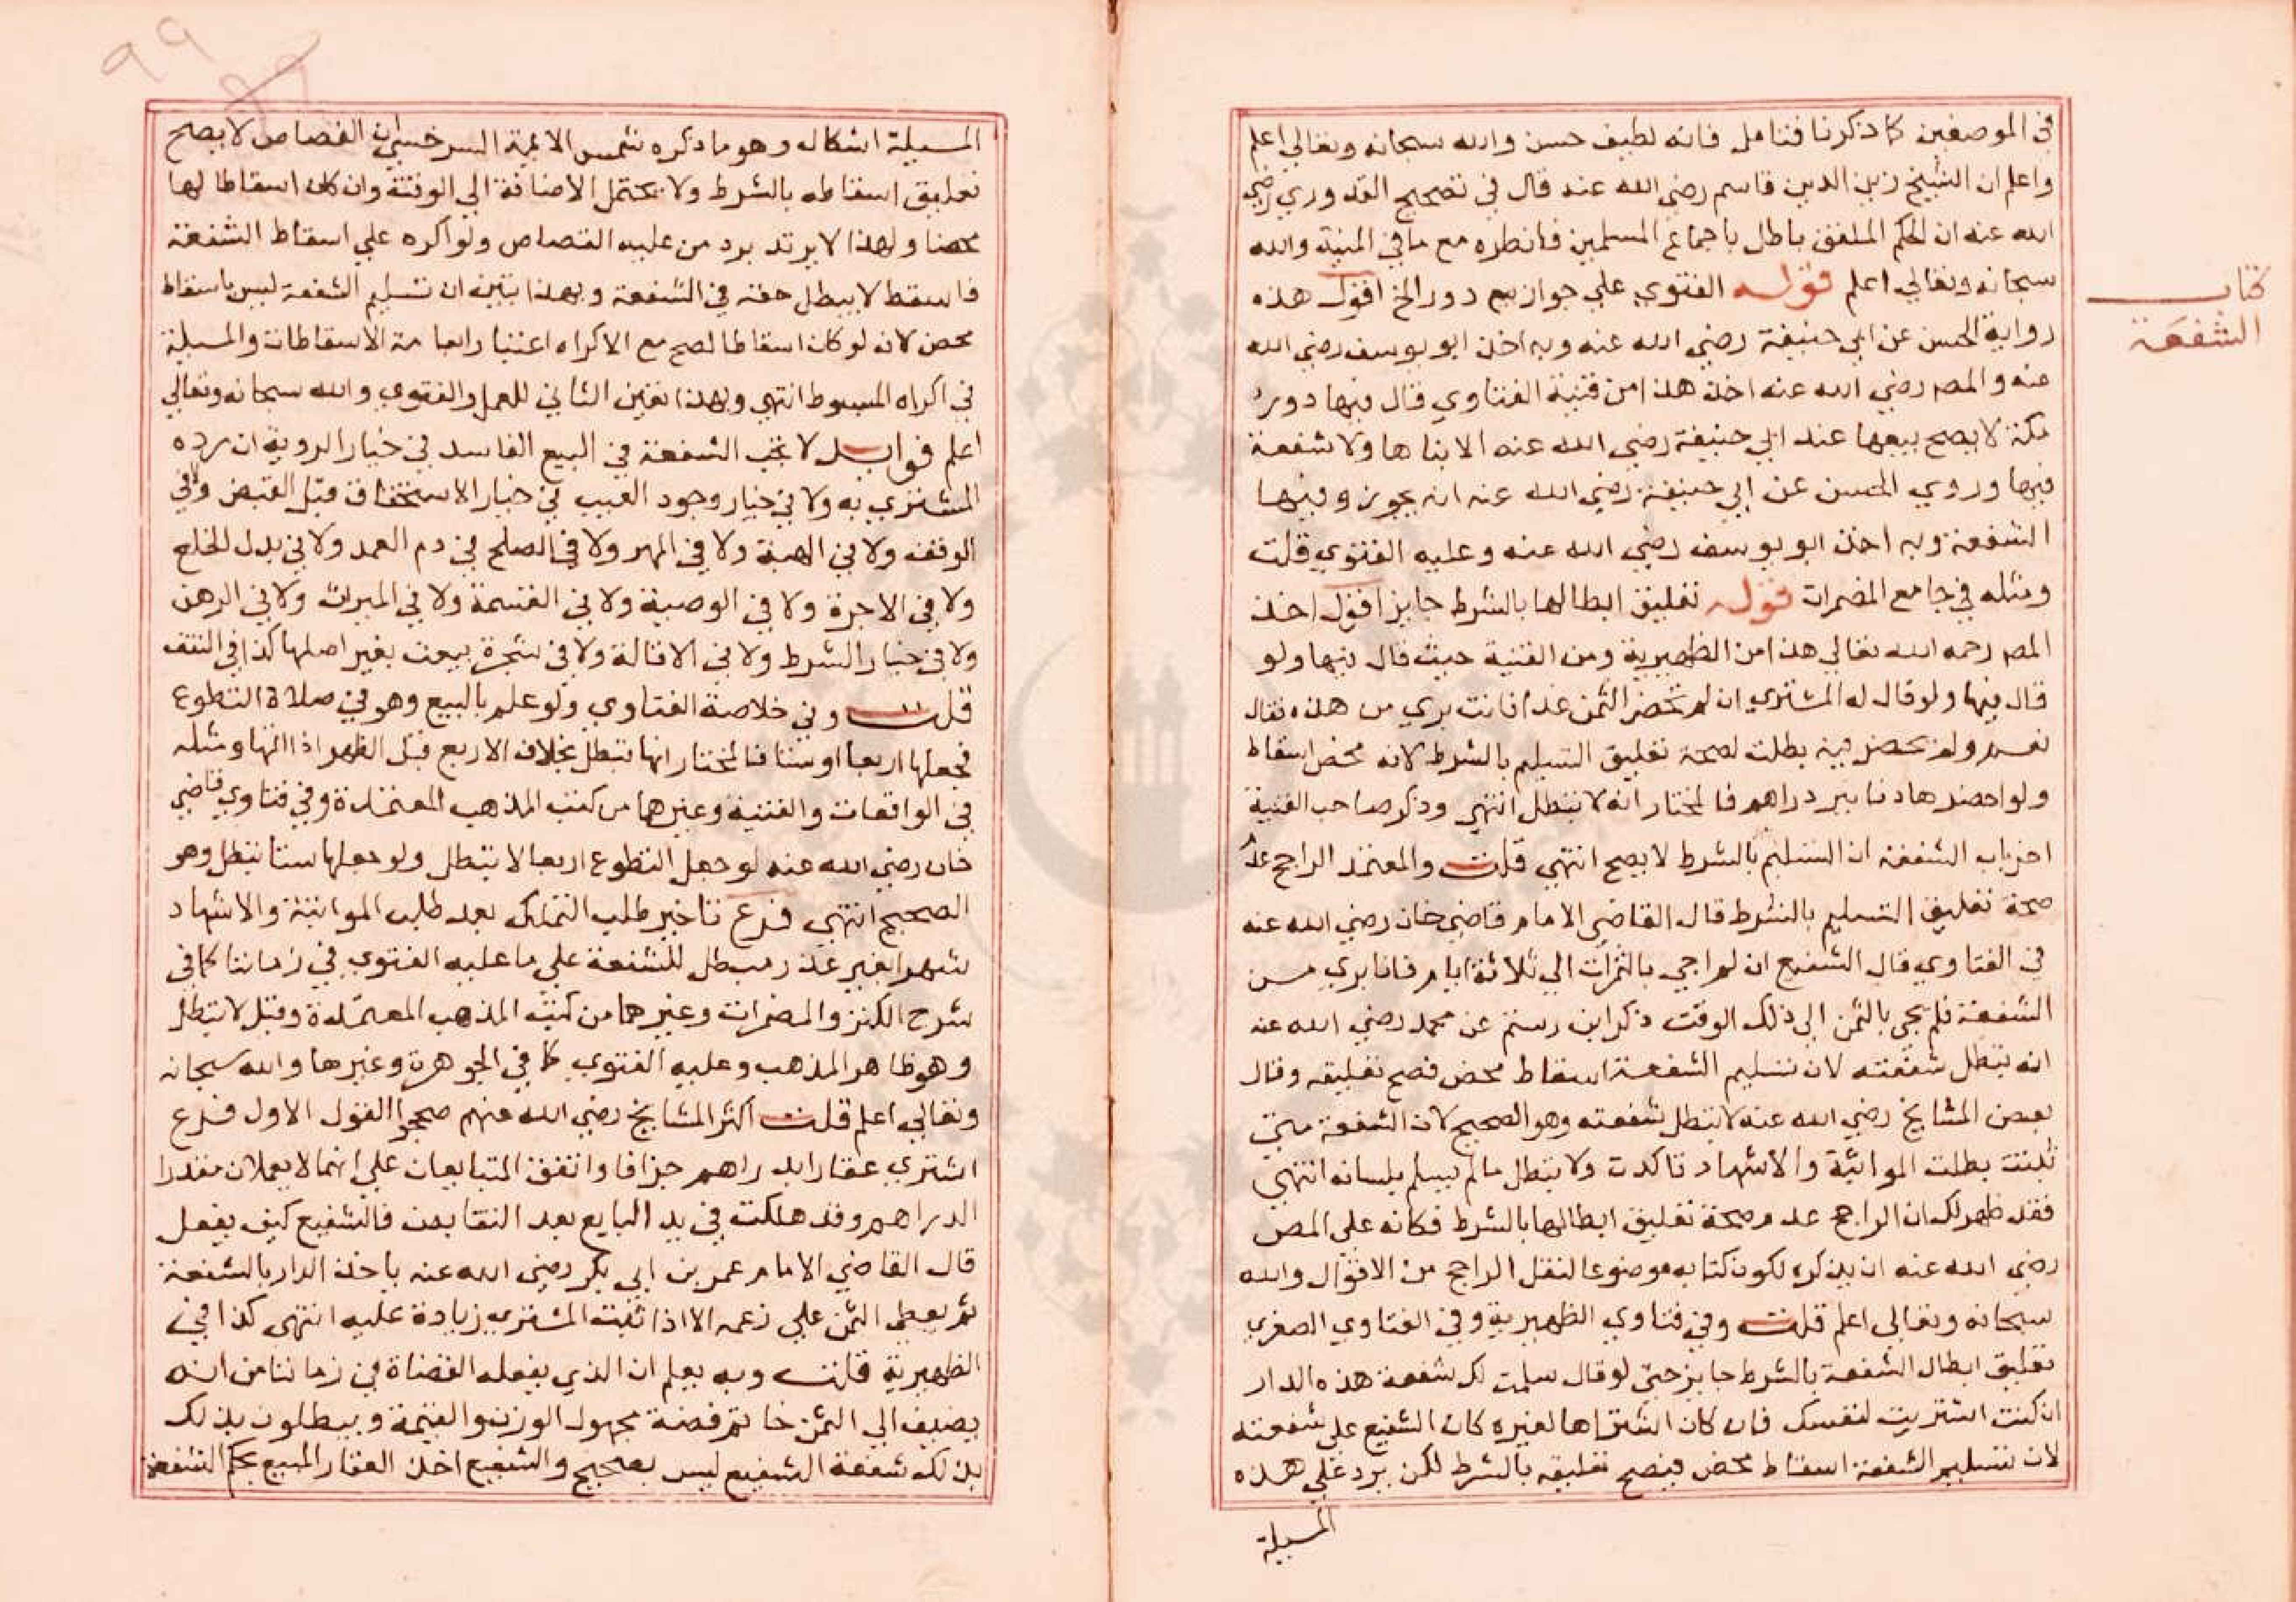 في الموضعين كما ذكرنا فتامل فانه لطيف حسن والله سبحانه وتعالي اعلم
واعلم ان الشيخ زين الدين قاسم رضي الله عنه قال في تصحيح القدوري رضي
الله عنه ان الحكم الملفق باطل باجماع المسلمين فانظره مع ما في المنية والله
سبحانه وتعالي اعلم قوله الفتوي علي جواز بيع دور الخ اقول هذه
كتاب
الشفعة
رواية الحسن عن ابي حنيفة رضي الله عنه وبه اخذ ابو يوسف رضي الله
عنه والمصر رضي الله عنه اخذ هذا من قنية الفتاوي قال فيها دور
مكة لا يصح بيعها عند ابي حنيفة رضي الله عنه الا بناها ولا شفعة
فيها وروي الحسن عن ابي حنيفة رضي الله عنه انه يجوز وفيها
الشفعة وبه اخذ ابو يوسف رضي الله عنه وعليه الفتوي قلت
ومثله في جامع المضمرات قوله تعليق ابطالها بالشرط جايز اقول اخذ
المصر رحمه الله تعالي هذا من الظهيرية ومن القنية حيث قال فيها ولو
قال فيها ولو قال له المشتري ان لم تحضر الثمن غدا فانت بري من هذه فقال
نعم ولم يحضر فيه بطلت لصحة تعليق التسليم بالشرط لانه محض اسقاط
ولو احضرها دنانير دراهم فالمختار انه لا تبطل انتهي وذكر صاحب القنية
اخر باب الشفعة ان التسليم بالشرط لا يصح انتهي قلت والمعتمد الراجح عدم
صحة تعليق التسليم بالشرط قال القاضي الامام قاضي خان رضي الله عنه
في الفتاوي قال الشفيع ان لم اجي بالثمرات الي ثلاثة ايام فانا بري من
الشفعة فلم يجي بالثمن الي ذلك الوقت ذكر ابن رستم عن محمد رضي الله عنه
انه تبطل شفعته لان تسليم الشفعة اسقاط محض فصح تعليقه وقال
بعض المشايخ رضي الله عنه لا تبطل شفعته وهو الصحيح لان الشفعة متي
ثبتت بطلت المواثبة والاشهاد تاكدت ولا تبطل ما لم يسلم بلسانه انتهي
فقد ظهر لك ان الراجح عدم صحة تعليق ابطالها بالشرط فكانه علي المص
رضي الله عنه ان يذكره لكون كتابه موضوعا لنقل الراجح من الاقوال والله
سبحانه وتعالي اعلم قلت وفي فتاوي الظهيرية وفي الفتاوي الصغري
تعليق ابطال الشفعة بالشرط جايز حتي لو قال سلمت لك شفعة هذه الدار
ان كنت اشتريت لنفسك فان كان اشتراها لغيره كان الشفيع علي شفعته
لان تسليم الشفعة اسقاط محض فيصح تعليقه بالشرط لكن يرد علي هذه
المسيلة
٩٩
المسيلة اشكال وهو ما ذكره شمس الايمة السرخسي ان القصاص لا يصح
تعليق اسقاطه بالشرط ولا يحتمل الاضافة الي الوقتة وان كان اسقاطا لها
محضا ولهذا لا يرتد برد من عليه القصاص ولو اكره علي اسقاط الشفعة
فاسقط لا يبطل حقه في الشفعة وبهذا تبين ان تسليم الشفعة ليس باسقاط
محض لان لو كان اسقاطا لصح مع الاكراه اعتبارا بعامة الاسقاطات والمسيلة
في اكراه المبسوط انتهي وبهذا تعين الثاني للعمل والفتوي والله سبحانه وتعالي
اعلم فوايد لا تجب الشفعة في البيع الفاسد في خيار الروية ان رده
المشتري به ولا في خيار وجود العيب في خيار الاستحقاق قبل القبض ولا في
الوقف ولا في الهبة ولا في المهر ولا في الصلح في دم العمد ولا في بدل الخلع
ولا في الاجرة ولا في الوصية ولا في القسمة ولا في الميراث ولا في الرهن
ولا في خيار الشرط ولا في الاقالة ولا في شجرة بيعت بغير اصلها كذا في النتف
قلت وفي خلاصة الفتاوي ولو علم بالبيع وهو في صلاة التطوع
فجعلها اربعا او ستا فالمختار انها تبطل بخلاف الاربع قبل الظهر اذا اتمها ومثله
في الواقعات والقنية وغيرهما من كتب المذهب المعتمدة وفي فتاوي قاضي
خان رضي الله عنه لو جعل التطوع اربعا لا تبطل ولو جعلها ستا تبطل وهو
الصحيح انتهي فرع تاخير طلب التملك بعد طلب المواثبة والاشهاد
شهرا بغير عذر مبطل للشفعة علي ما عليه الفتوي في زماننا كما في
شرح الكنز والمضمرات وغيرهما من كتب المذهب المعتمدة وقيل لا تبطل
وهو ظاهر المذهب وعليه الفتوي كما في الجوهرة وغيرها والله سبحانه
وتعالي اعلم قلت اكثر المشايخ رضي الله عنهم صححوا القول الاول فرع
اشتري عقارا بدراهم جزافا واتفق المتبايعان علي انهما لا يعلمان مقدرا
الدراهم وقد هلكت في يد البايع بعد التقابض فالشفيع كيف يفعل
قال القاضي الامام عمر بن ابي بكر رضي الله عنه ياخذ الدار بالشفعة
ثم يعطي الثمن علي زعمه الا اذا ثبت المشتري زيادة عليه انتهي كذا في
الظهيرية قلت وبه يعلم ان الذي يفعله القضاة في زماننا من انه
يضيف الي الثمن خاتم فضة مجهول الوزن والقيمة ويبطلون بذلك
بذلك شفعة الشفيع ليس بصحيح والشفيع اخذ العقار المبيع بحكم الشفعة